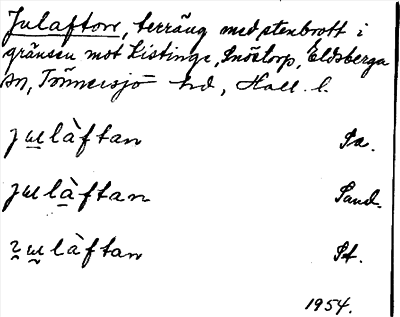 Julafton, terräng med stenbrott i
gränsen mot Kistinge, Snöstorp, Eldsberga
sn, Tönnersjö hd, Hall. l.
julàftan Sa.
julàftan Sand.
julàftan St.
1954.